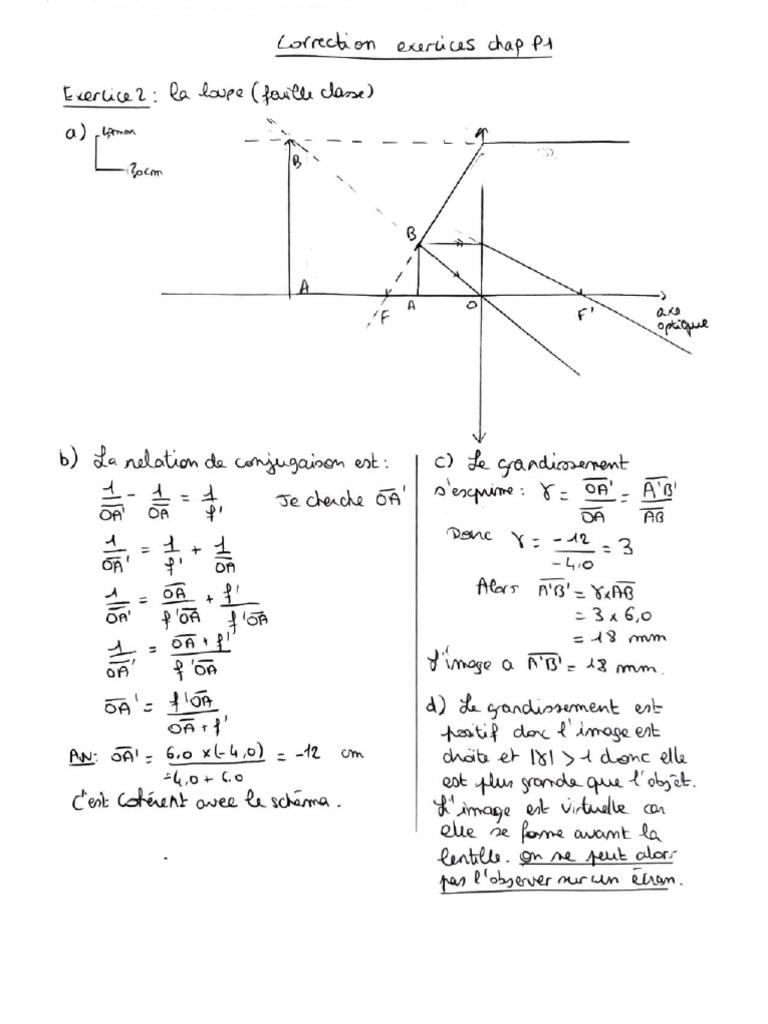 Correction exercices chap P1
Exercice 2 : La loupe (feuille classe)
a)
2,0cm
B
A
B
F
A
O
F'
axe
optique
b) La relation de conjugaison est :
1/OA' - 1/OA = 1/f' Je cherche OA'
1/OA' = 1/f' + 1/OA
1/OA' = OA/f'OA + f'/f'OA
1/OA' = OA + f'/f'OA
OA' = f'OA/OA + f'
AN: OA' = 6,0 x (-4,0)/-4,0 + 6,0 = -12 cm
C'est cohérent avec le schéma.
c) Le grandissement
s'exprime : γ = OA'/OA = A'B'/AB
Donc γ = -12/-4,0 = 3
Alors A'B' = γ x AB
= 3 x 6,0
= 18 mm
L'image a A'B' = 18 mm.
d) Le grandissement est
positif donc l'image est
droite et |γ| > 1 donc elle
est plus grande que l'objet.
L'image est virtuelle car
elle se forme avant la
lentille. On ne peut alors
pas l'observer sur un écran.